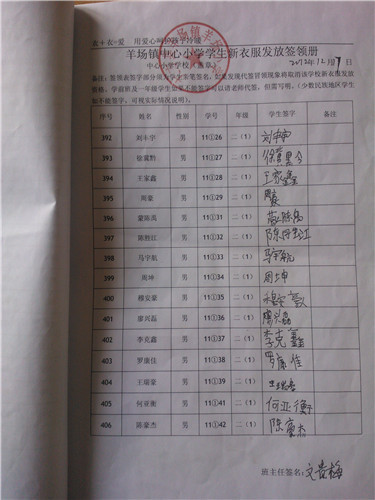 衣+衣=爱 用爱心呵护孩子
羊场镇中心小学学生新衣服发放签领册
中心小学学校(盖章) 2012年12月17日
备注:签领表签字部分须为学生亲笔签名,如果发现代签冒领现象将取消该学校新衣服发放
资格。学前班及一年级学生如果不能签字可以请老师代签,但需写明。(少数民族地区学生
如不能签字,可视实际情况说明)。
序号 姓名 性别 学号 年级 学生签字 备注
392 刘丰学 男 11①26 二(1)
393 徐黄黔 男 11①27 二(1)
394 王家鑫 男 11①28 二(1) 王家鑫
395 周豪 男 11①29 二(1) 周豪
396 蒙陈禹 男 11①31 二(1)
397 陈 江 男 11①32 二(1)
398 马宇航 男 11①33 二(1) 马宇航
399 周坤 男 11①34 二(1) 周坤
400 穆安豪 男 11①35 二(1)
401 廖兴磊 男 11①36 二(1) 廖兴磊
402 李克鑫 男 11①37 二(1) 李克鑫
403 罗康佳 男 11①38 二(1) 罗康佳
404 王瑞豪 男 11①39 二(1) 王瑞豪
405 何亚衡 男 11①41 二(1) 何亚衡
406 陈豪杰 男 11①42 二(1) 陈豪杰
班主任签名: 文贵梅